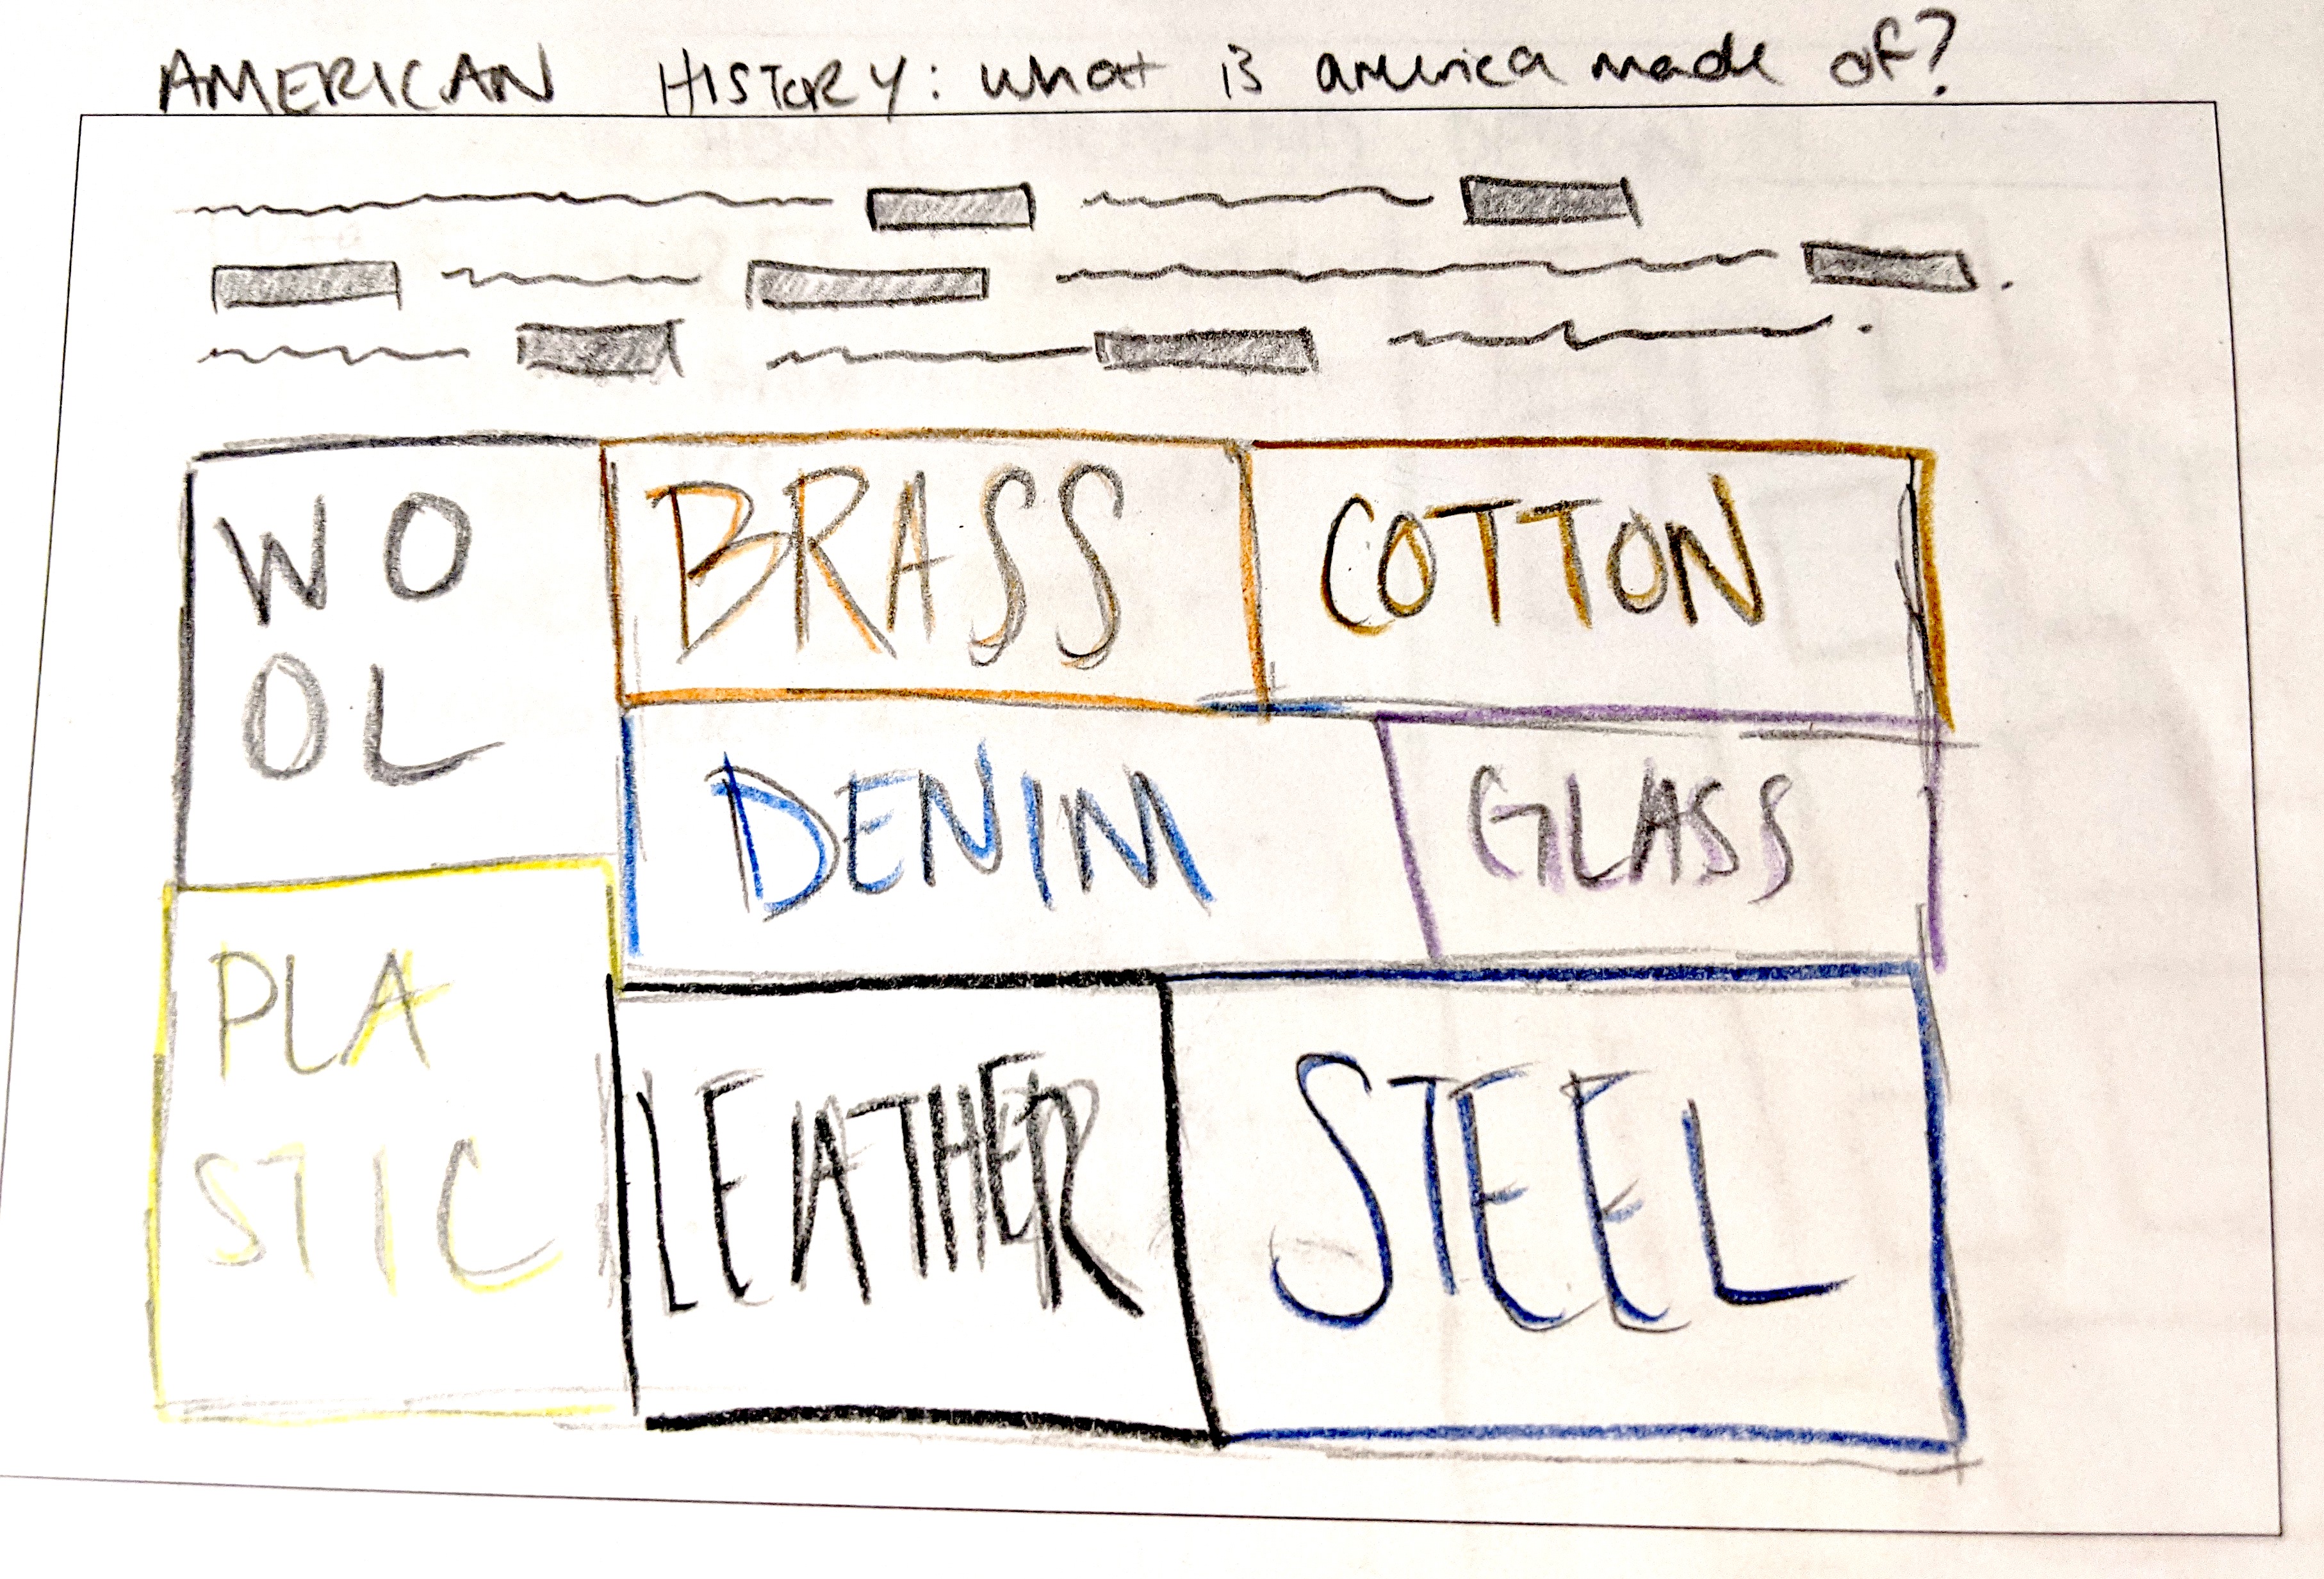 AMERICAN HISTORY: what is america made of?
WO
OL
BRASS
COTTON
DENIM
GLASS
PLA
STIC
LEATHER
STEEL